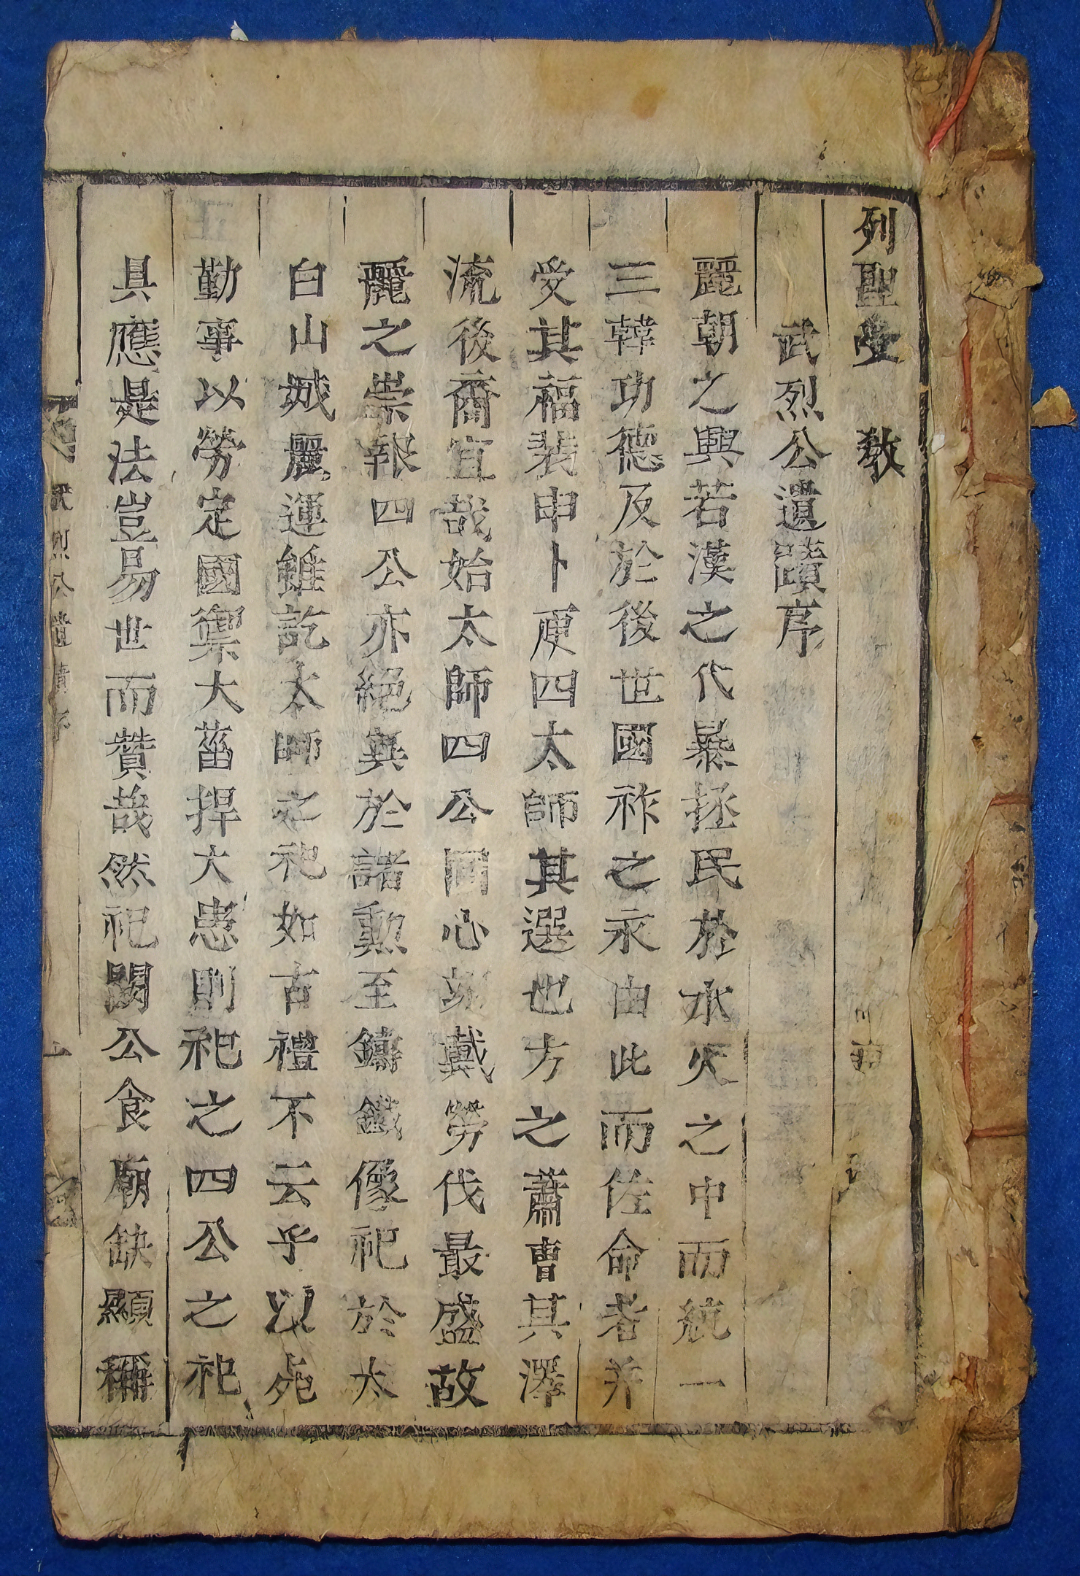 列聖受 教
武烈公遺蹟序
麗朝之興若漢之代暴拯民於水火之中而統一
三韓功德及於後世國祚之永由此而佐命者并
受其福裴申卜庾四太師其選也方之蕭曹其澤
流後裔宜哉始太師四公同心推戴勞伐最盛故
麗之崇報四公亦絕異於諸勳至鑄鐵像祀於太
白山城麗運雖訖太師之祀如古禮不云乎以死
勤事以勞定國禦大菑捍大患則祀之四公之祀
具應是法豈易世而替哉然祀闕公食廟缺顯稱
武烈公遺蹟序
一